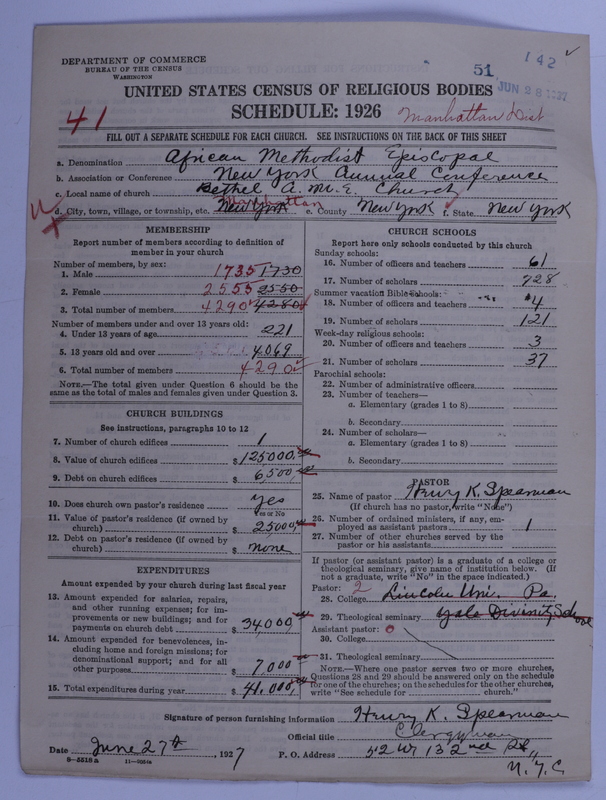 142 ✓
51
JUN 28 1927
DEPARTMENT OF COMMERCE
BUREAU OF THE CENSUS
WASHINGTON
UNITED STATES CENSUS OF RELIGIOUS BODIES
SCHEDULE: 1926
41
Manhattan Dist
FILL OUT A SEPARATE SCHEDULE FOR EACH CHURCH. SEE INSTRUCTIONS ON THE BACK OF THIS SHEET
a. Denomination African Methodist Episcopal
b. Association or Conference New York Annual Conference
c. Local name of church Bethel A.M.E. Church
Manhattan
d. City, town, village, or township, etc. New York e. County New York f. State New York
MEMBERSHIP
Report number of members according to definition of
member in your church
Number of members, by sex:
1. Male 1735 1730
2. Female 2555 2550
3. Total number of members 4290 4280
Number of members under and over 13 years old:
4. Under 13 years of age 221
5. 13 years old and over 4069
6. Total number of members 4290
NOTE.—The total given under Question 6 should be the
same as the total of males and females given under Question 3.
CHURCH BUILDINGS
See instructions, paragraphs 10 to 12
7. Number of church edifices 1
8. Value of church edifices $125000,
9. Debt on church edifices $6,500,
10. Does church own pastor's residence yes
Yes or No
11. Value of pastor's residence (if owned by
church) $25000,
12. Debt on pastor's residence (if owned by
church) $none
EXPENDITURES
Amount expended by your church during last fiscal year
13. Amount expended for salaries, repairs,
and other running expenses; for im-
provements or new buildings; and for
payments on church debt $34,000,
14. Amount expended for benevolences, in-
cluding home and foreign missions; for
denominational support; and for all
other purposes $7,000
15. Total expenditures during year $41,000,
CHURCH SCHOOLS
Report here only schools conducted by this church
Sunday schools:
16. Number of officers and teachers 61
17. Number of scholars 728
Summer vacation Bible schools:
18. Number of officers and teachers 4
19. Number of scholars 121
Week-day religious schools:
20. Number of officers and teachers 3
21. Number of scholars 37
Parochial schools:
22. Number of administrative officers
23. Number of teachers—
a. Elementary (grades 1 to 8)
b. Secondary
24. Number of scholars—
a. Elementary (grades 1 to 8)
b. Secondary
PASTOR
25. Name of pastor Henry K. Spearman
(If church has no pastor, write "None")
26. Number of ordained ministers, if any, em-
ployed as assistant pastors 1
27. Number of other churches served by the
pastor or his assistants
If pastor (or assistant pastor) is a graduate of a college or
theological seminary, give name of institution below. (If
not a graduate, write "No" in the space indicated.)
Pastor: 2
28. College Lincoln Uni. Pa.
29. Theological seminary Yale Divinity School
Assistant pastor: 0
30. College
31. Theological seminary
NOTE.—Where one pastor serves two or more churches,
Questions 28 and 29 should be answered only on the schedule
for one of the churches; on the schedules for the other churches,
write "See schedule for church."
Signature of person furnishing information Henry K. Spearman
Official title Clergyman
Date June 27th, 1927 P. O. Address 52 W 132nd St,
N.Y.C
8—5518a 11—9254a